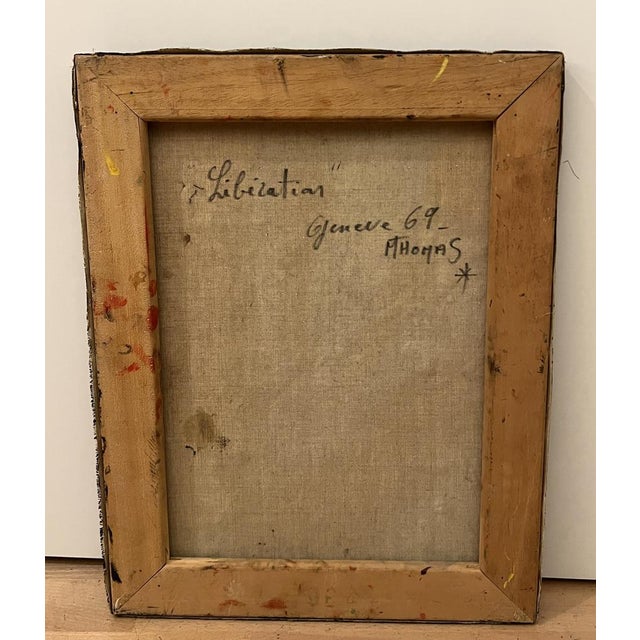 "Libération"
Geneve 69_
MTHOMAS
*